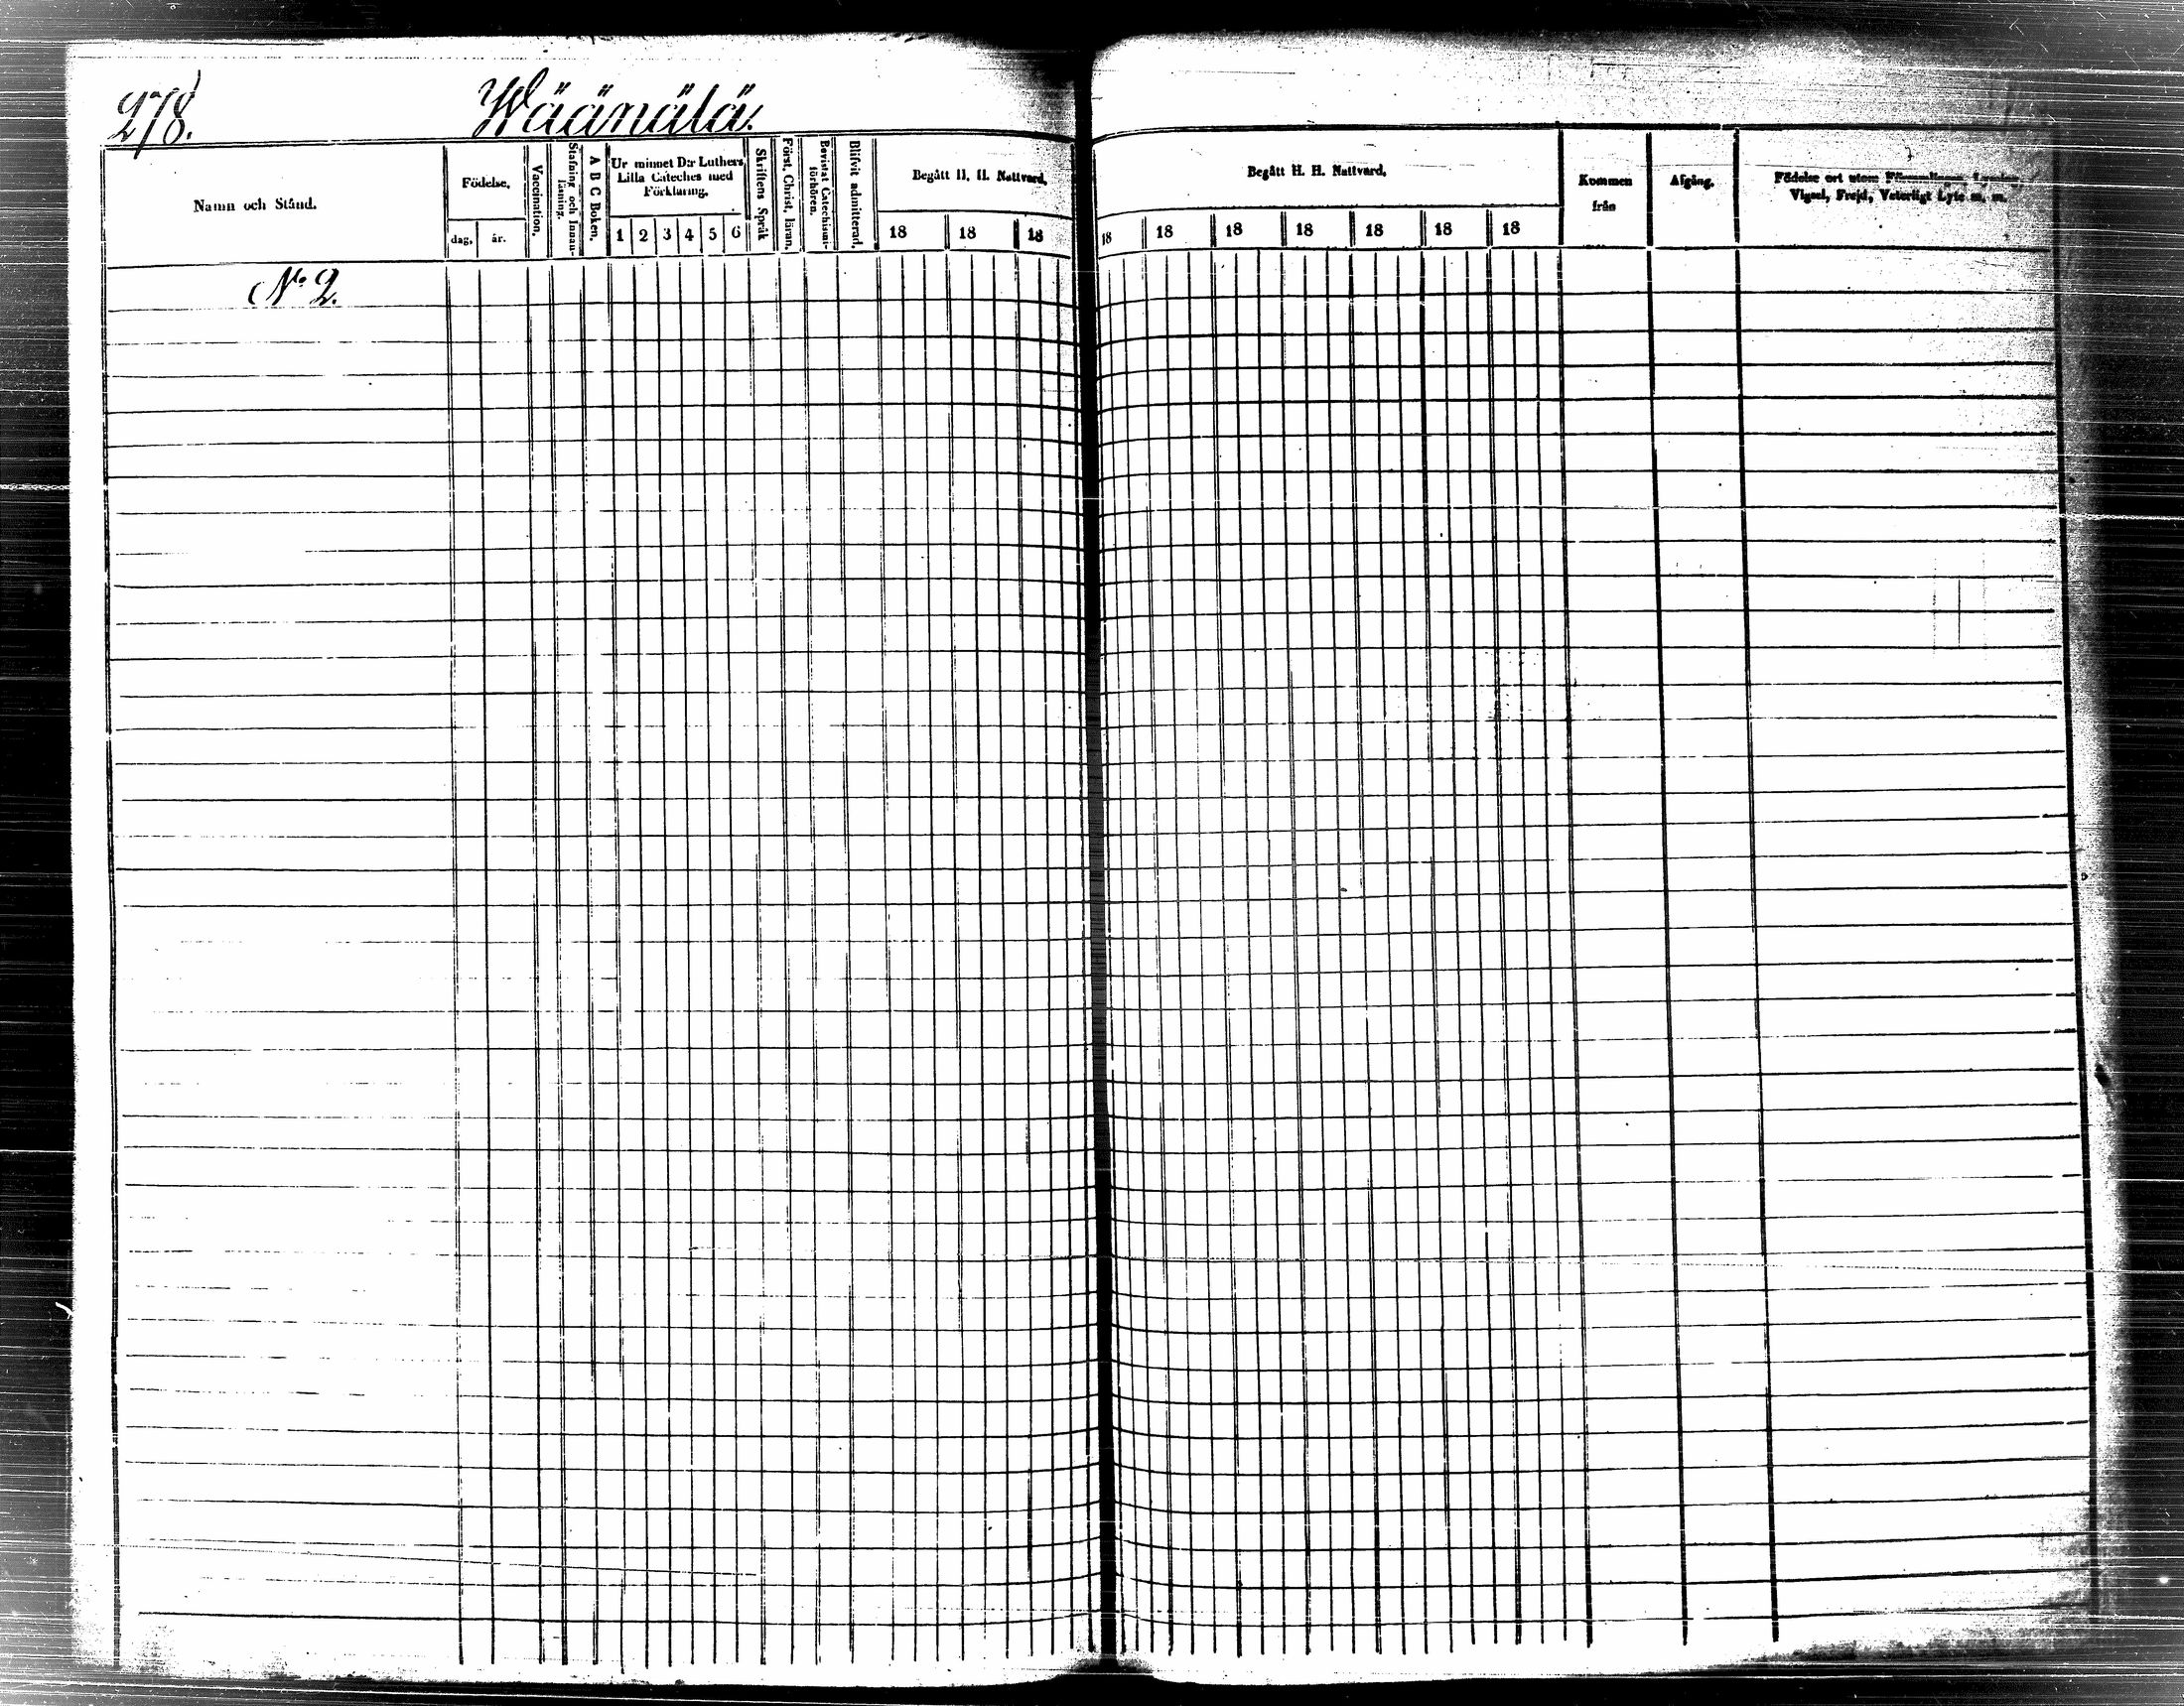 278.
Wäänälä.
Namn och Stånd.
Födelse,
dag, år.
Vaccination.
Stafning och Innan-
läsning.
A B C Boken.
Ur minnet D:r Luthers
Lilla Cateches med
Förklaring.
1 2 3 4 5 6
Skriftens Språk
Först. Christ. läran.
Bevistat Catechismi-
förhören.
Blifvit admitterad.
Begått H. H. Nattvard,
18 18 18
Begått H. H. Nattvard,
18 18 18 18 18 18 18
Kommen
från
Afgång.
Födelse ort utom Församlingen, Lysning,
Vigsel, Frejd, Vaterligt Lyte m. m.
No 2.